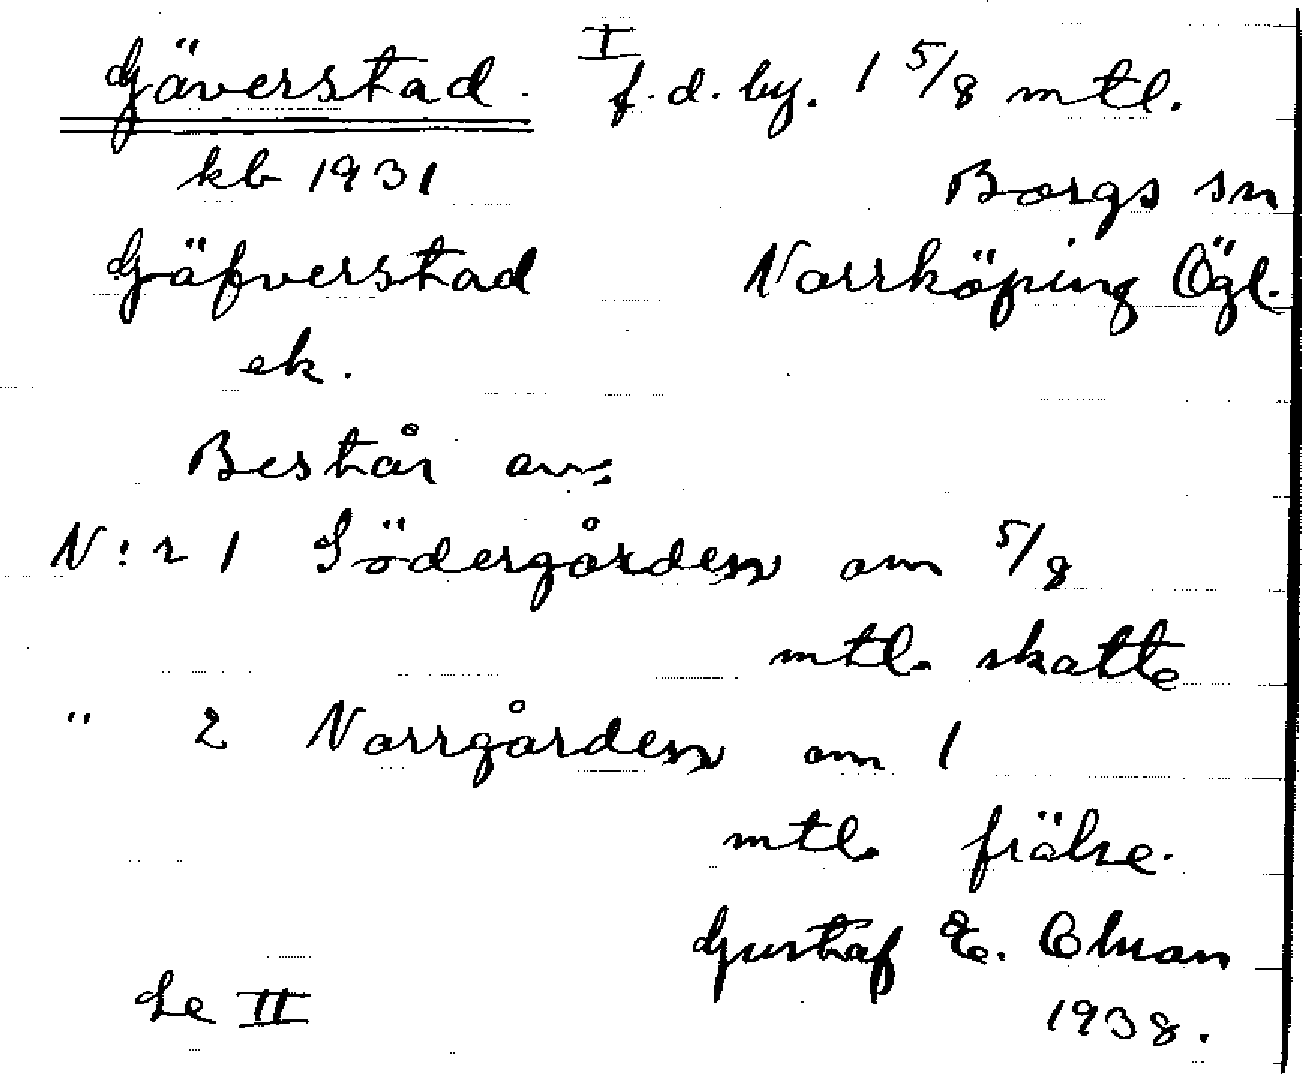 I
Gäverstad. f.d. by. 1 5/8 mtl.
kb 1931
Borgs sn
Gäfverstad Norrköping Ögl.
ek.
Består av:
N:r 1 Södergården om 5/8
mtl. skatte
" 2 Norrgården om 1
mtl. frälse.
Gustaf E. Olson
Se II
1938.